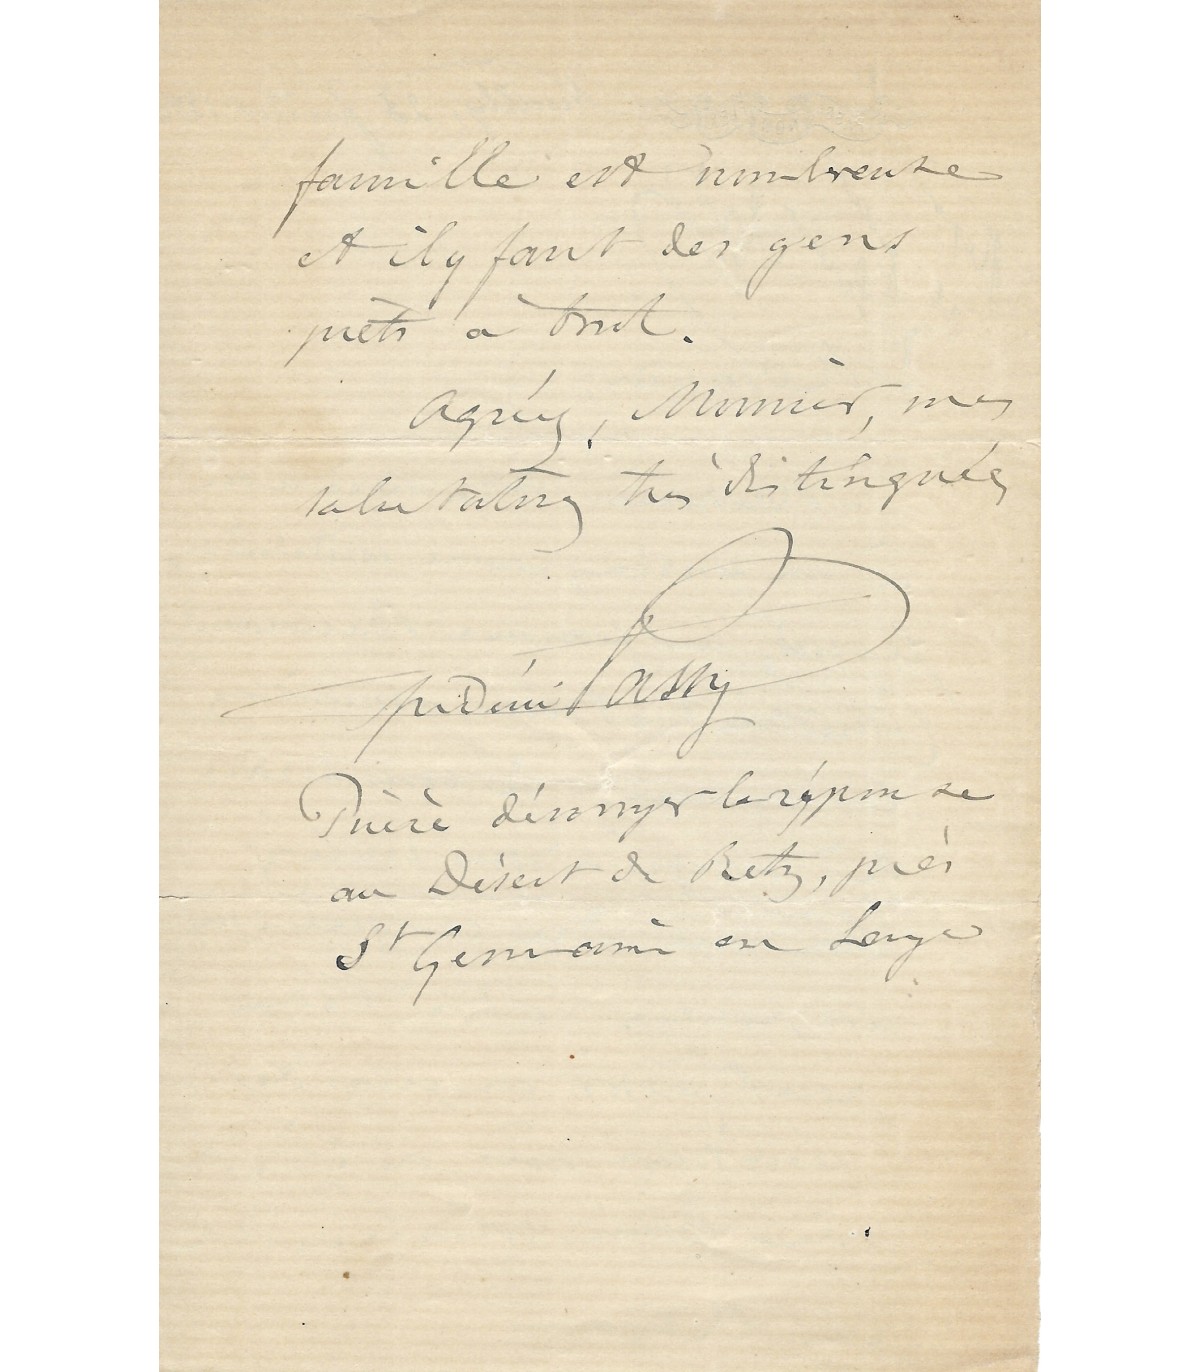 famille est nombreuse
et il y faut des gens
prêts à tout.
Agréez, Monsieur, mes
salutations très distinguées
Frédéric Passy
Prière d'envoyer la réponse
au Désert de Retz, près
St Germain en Laye